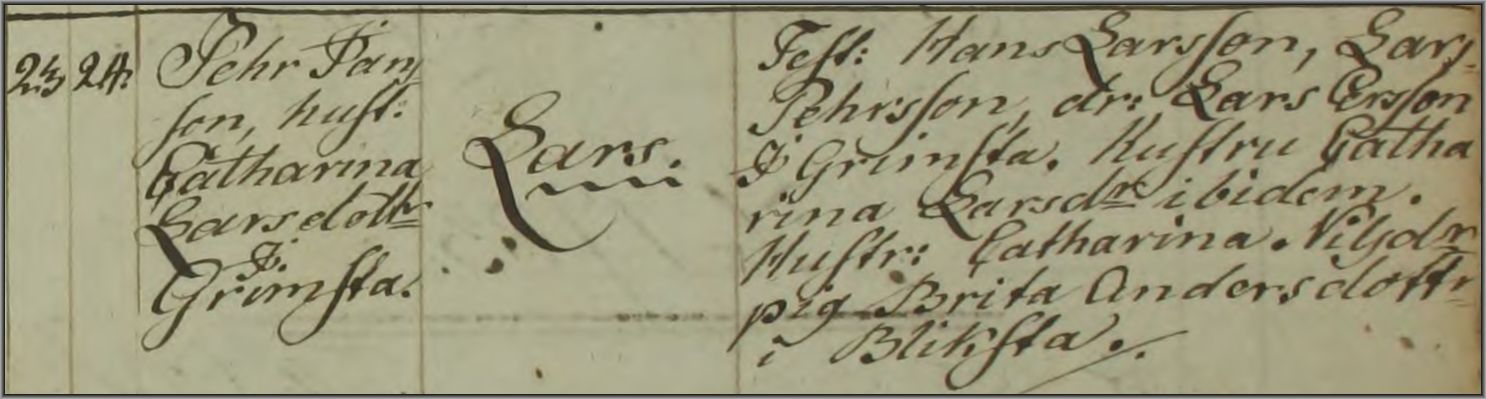 23 24.
Pehr Jan-
son, hust:
Catharina
Larsdottr
I
Grimsta.
Lars.
Test: Hans Larsson, Lars
Pehrsson, dr: Lars Ersson
I Grimsta. Hustru Catha
rina Larsdr ibidem.
Hustr: Catharina Nilsdr
pig Brita Andersdottr
i Bliksta.